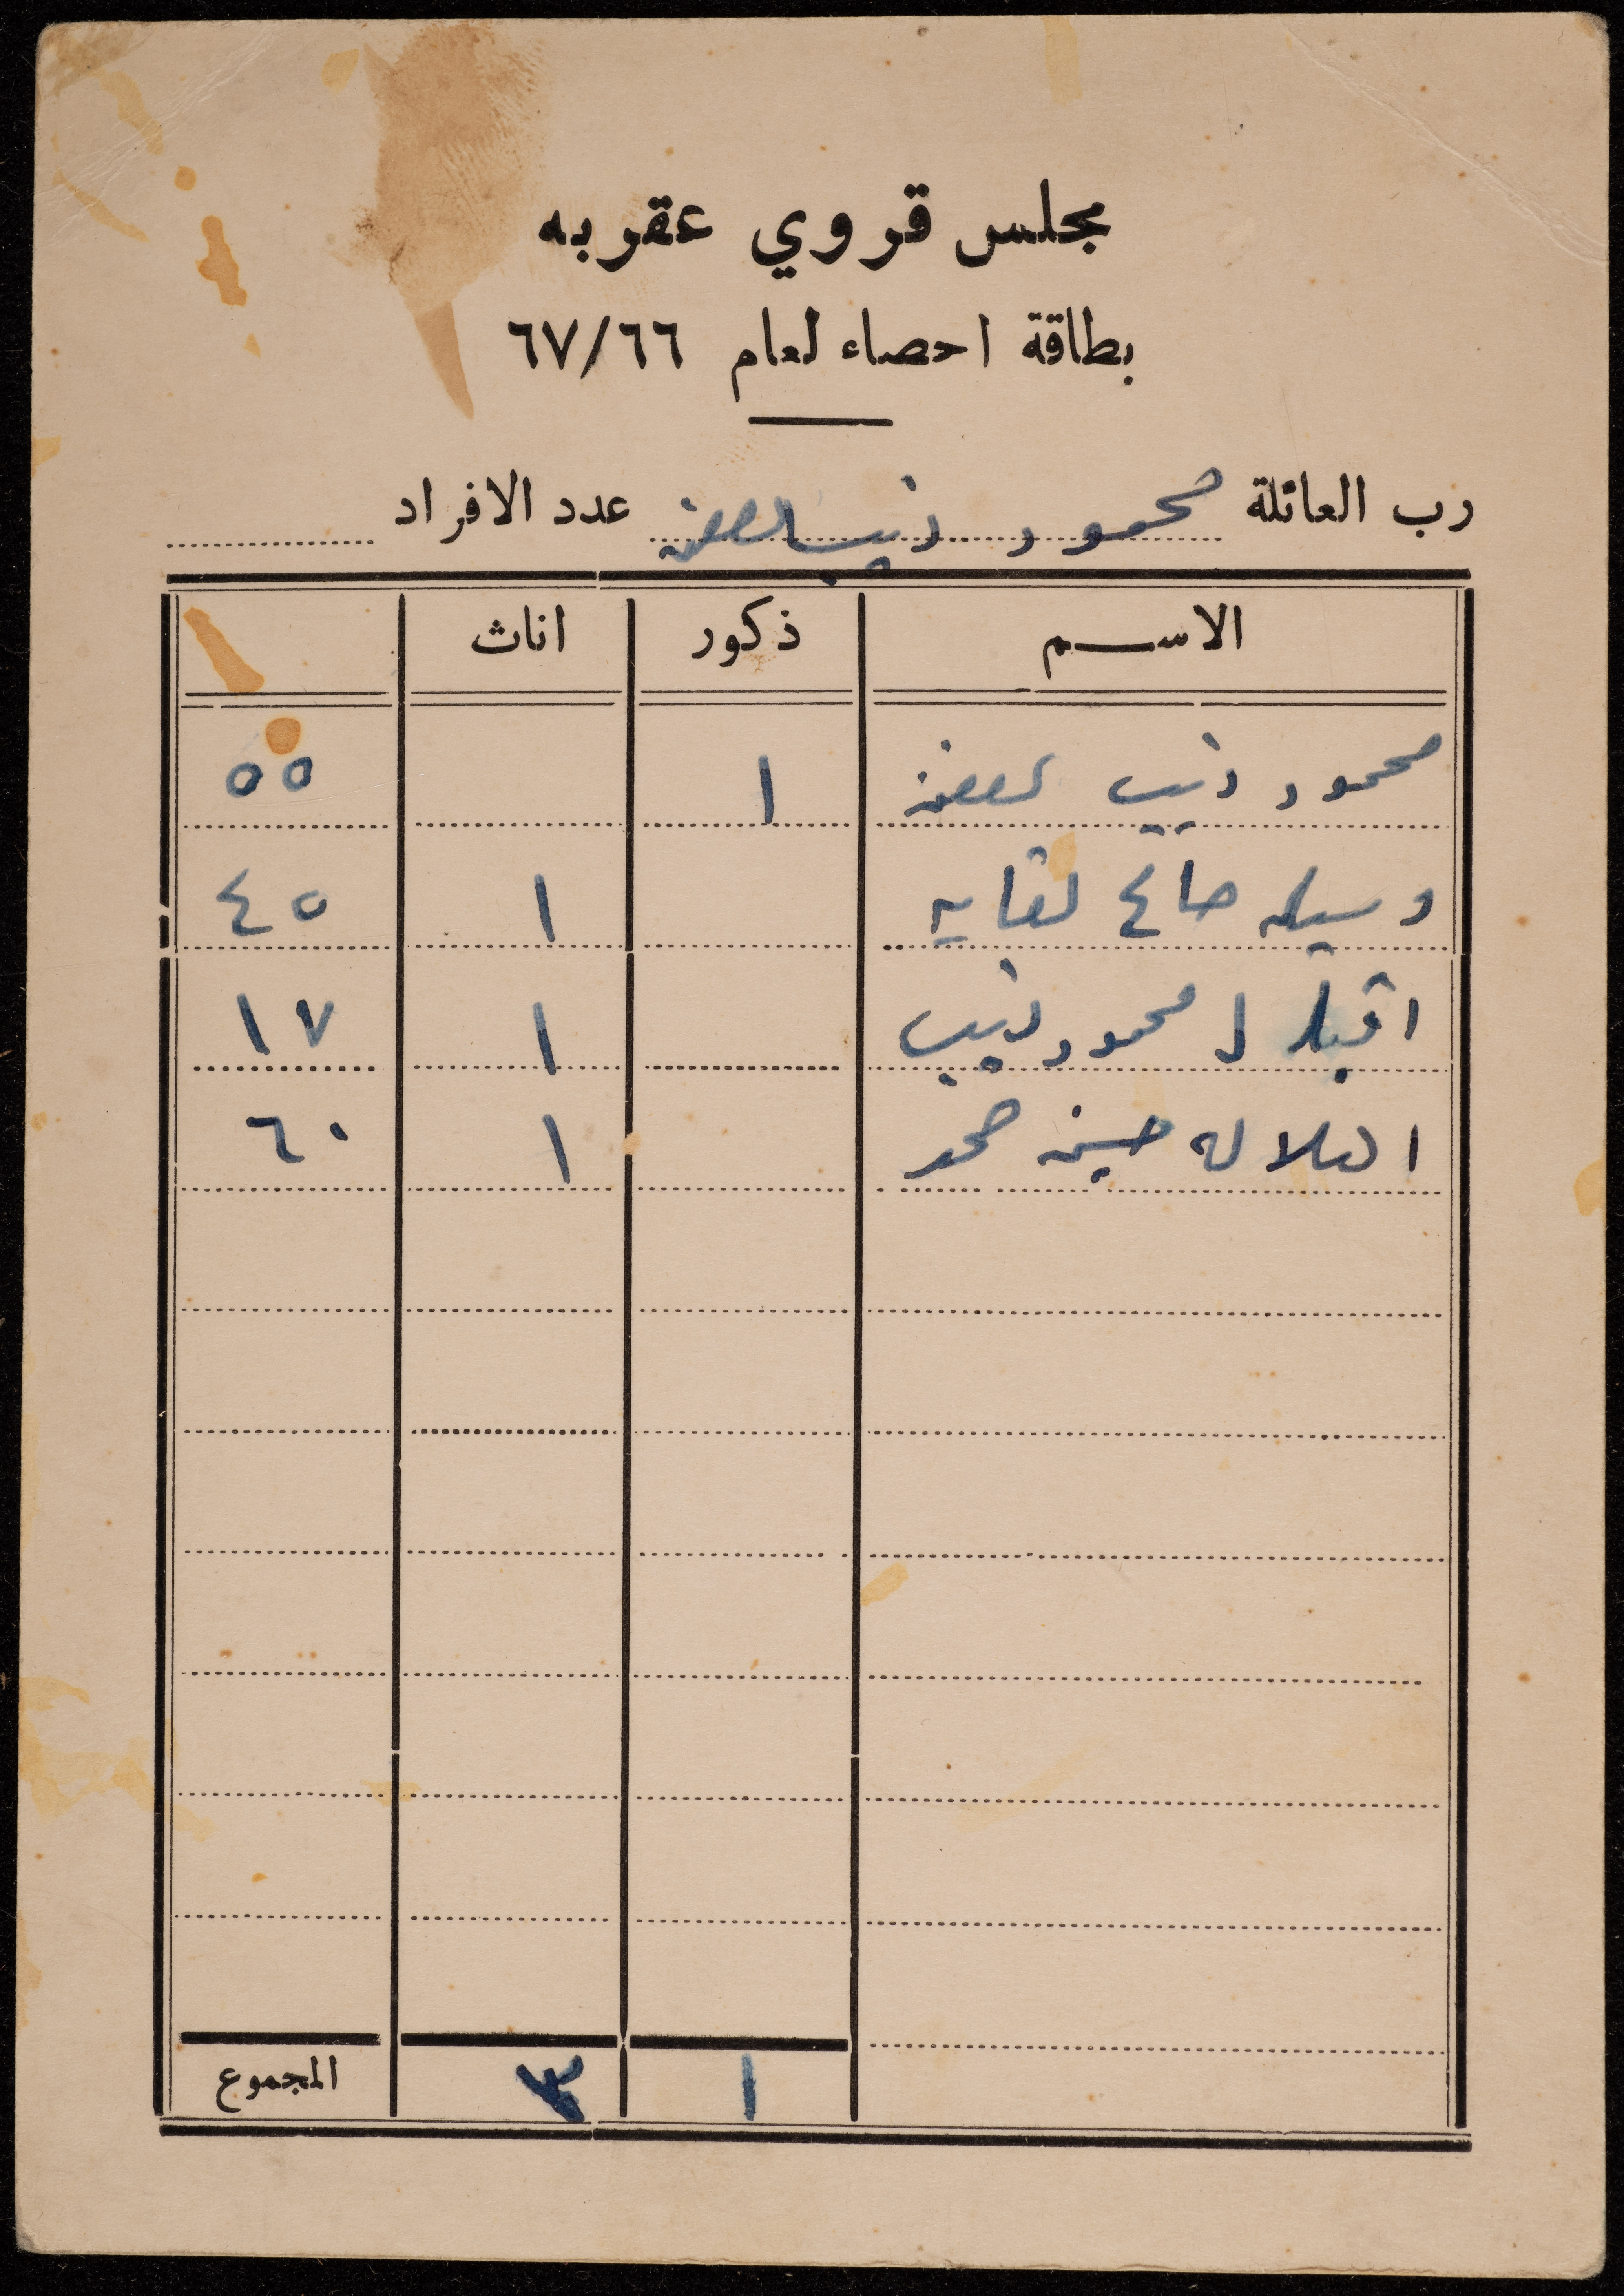 مجلس قروي عقربه
بطاقة احصاء لعام ٦٧/٦٦
رب العائلة محمود ذيب عدد الافراد
الاسم ذكور اناث
محمود ذيب ١ ٥٥
وسيله صالح ١ ٤٥
اقبال محمود ذيب ١ ١٧
حسين محمد ١ ٦٠
١ ٣ المجموع